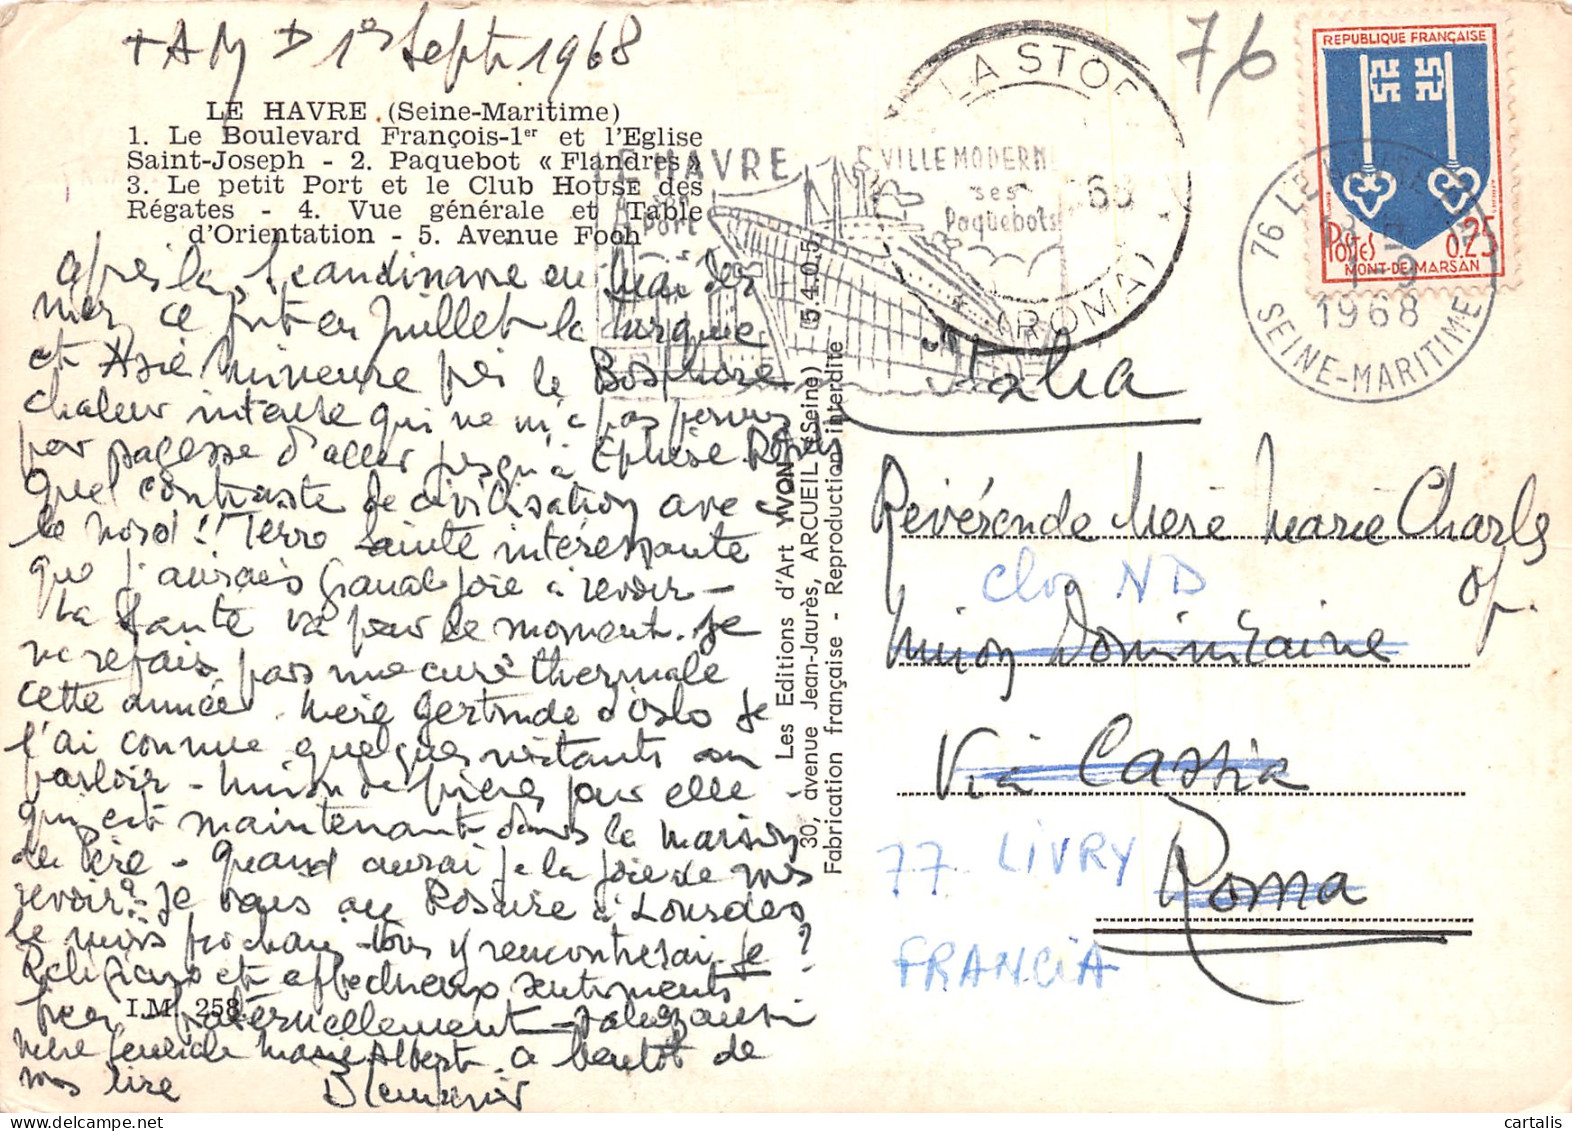 1er Sept. 1968
76
LE HAVRE (Seine-Maritime)
1. Le Boulevard François-1er et l'Eglise
Saint-Joseph - 2. Paquebot « Flandres »
3. Le petit Port et le Club House des
Régates - 4. Vue générale et Table
d'Orientation - 5. Avenue Foch
LE HAVRE
son
Port
VILLE MODERNE
ses
Paquebots
LA STOR
(ROMA)
REPUBLIQUE FRANÇAISE
POSTES
0,25
MONT-DE-MARSAN
76 LE HAVRE
1-9
1968
SEINE-MARITIME
après la Scandinavie en mai
mer, ce fut en juillet la Turquie
et Asie Mineure puis le Bosphore
chaleur intense qui ne m'a pas permis
par sagesse d'aller jusqu'à Ephèse
Quel contraste de civilisation avec
le nord !! Terre Sainte intéressante
que j'aurais grande joie à revoir -
La santé va pour le moment. Je
ne refais pas ma cure thermale
cette année. Mère Gertrude d'Oslo je
l'ai connue quelques instants au
parloir - union de prières pour elle -
qui est maintenant dans la maison
du Père - Quand aurai je la joie de vous
revoir ? Je vais au Rosaire à Lourdes
le mois prochain - Vous y rencontrerai-je ?
Religieux et affectueux sentiments
fraternellement
Mère Marie Albert. a bientôt de
vous lire
I.M. 258
Les Editions d'Art YVON
30, avenue Jean-Jaurès, ARCUEIL (Seine) 5.4.0.5
Fabrication française - Reproduction interdite
Italia
Révérende Mère Marie Charles
op.
Clos ND
Union Dominicaine
Via Cassia
77 LIVRY
Roma
FRANCIA
cartalis.com